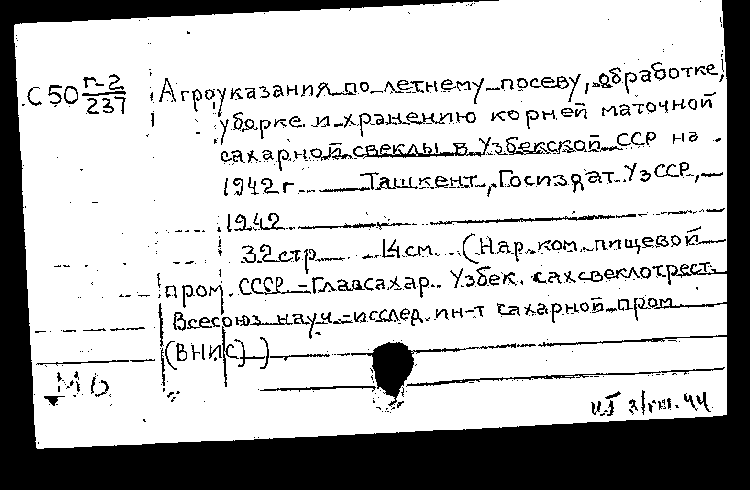 С50 П-2/237 Агроуказания по летнему посеву, обработке,
уборке и хранению корней маточной
сахарной свеклы в Узбекской ССР на
1942 г Ташкент, Госиздат УзССР,
1942
32 стр 14 см (Нар. ком. пищевой
пром. СССР - Главсахар. Узбек. сахсвеклотрест.
Всесоюз науч.-исслед. ин-т сахарной пром
(ВНИС))
М 6
3/VIII. 44